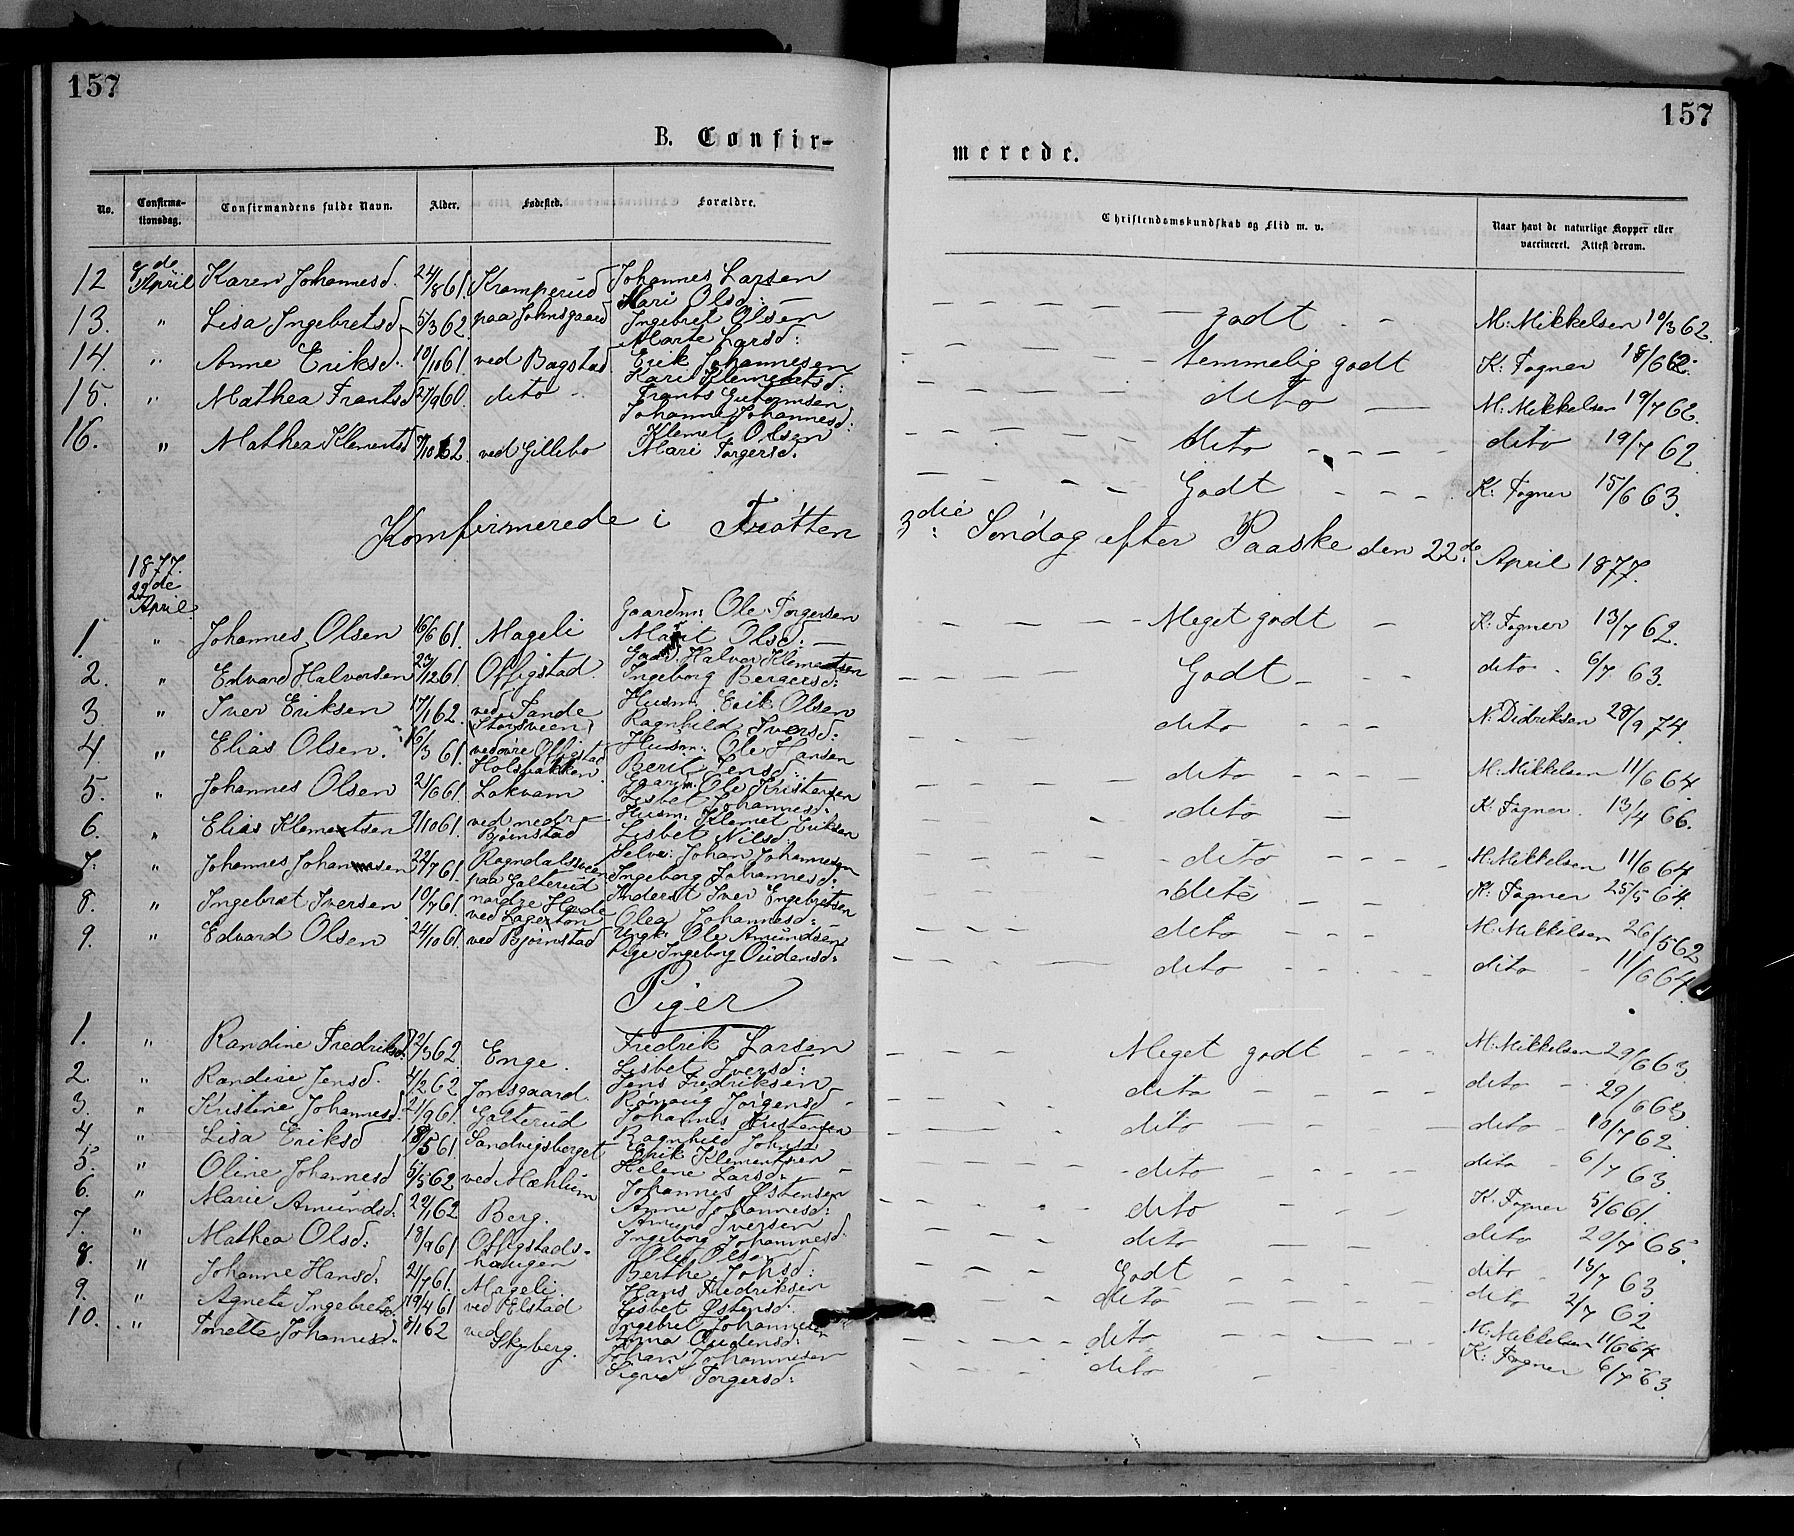 157
157
B. Confir-
merede.
No.
Confirma-
tionsdag.
Confirmandens fulde Navn.
Alder.
Fødested.
Forældre.
Christendomskundskab og Flid m. v.
Naar havt de naturlige Kopper eller
vaccineret. Attest derom.
12 8de April Karen Johannesd. 24/8 61. Kramperud Johannes Larsen
Mari Olsd: — godt M: Mikkelsen 10/3 62.
13. " Lisa Ingebretsd 5/3 62. paa Johnsgaard Ingebret Olsen
Marte Larsd: temmelig godt K: Fogner 18/6 62.
14. " Anne Eriksd. 10/10 61. ved Bagstad Erik Johannesen
Kari Klemetsd: dito M: Mikkelsen 19/7 62.
15. " Mathea Frantsd 27/9 60. dito Frants Guttormsen
Johanne Johannesd: dito dito 19/7 62.
16. " Mathea Klemetsd /10 62. ved Gillebo Klemet Olsen
Mari Torgersd. Godt K: Fogner 15/6 63.
Komfirmerede i Trøtten 3die Søndag efter Paaske den 22de April 1877.
1877.
22de
April
1. " Johannes Olsen 16/6 61. Mageli Gaardm: Ole Torgersen
Marit Olsd: — Meget godt K: Fogner 13/7 62.
2. " Edvard Halvorsen 23/12 61. Offigstad. Gaar: Halvor Klemetsen
Ingeborg Bergersd: Godt dito 6/7 63.
3. " Iver Eriksen 17/1 62. ved Sande Husm. Erik Olsen
(Storsveen) Ragnhild Iversd: dito N: Didriksen 28/9 74.
4. " Elias Olsen. 16/3 61. ved øvre Offigstad Husm: Ole Hansen
Holsbakken. Berit Jensd: dito M: Mikkelsen 11/6 64.
5. " Johannes Olsen 21/6 61. Lokvam Gaarm. Ole Kristensen
Lisbet Johannesd: dito K: Fogner. 13/4 66.
6. " Elias Klemetsen /10 61. ved nedre Husm: Klemet Eriksen
Bjørnstad Lisbet Nilsd: dito M: Mikkelsen 11/6 64
7. " Johannes Johannesen 22/7 61. Ragndalsveen Selve: Johan Johannesen
paa Galterud Ingeborg Johannesd: dito K: Fogner 25/5 64.
8. " Ingebret Iversen 10/7 61. nordre Iver Engebretsen
ved Olea Johannesd: dito M: Mikkelsen 26/5 62
9. " Edvard Olsen 24/10 61. ved Bjørnstad Ungk: Ole Amundsen
Pige Ingeborg Oudensd: dito dito 11/6 64.
Piger
1. " Randine Fredriksd. 12/3 62. Enge. Fredrik Larsen
Lisbet Iversd: Meget godt M: Mikkelsen 29/6 63.
2. " Randine Jensd. 4/2 62 Jonsgaard. Jens Fredriksen
Rønaug Jørgensd dito dito 29/6 63.
3. " Kristine Johannesd. 21/9 61. Galterud Johannes Kristensen
Ragnhild Johnsd dito dito 10/7 62.
4. " Lisa Eriksd 18/5 61 Sandvigsberget Erik Klementsen
Helene Larsd: dito dito 6/7 63.
5. " Oline Johannesd 5/5 62 ved Mæhlum Johannes Østensen
Anne Johannesd: dito K. Fogner 5/6 61.
6. " Marie Amundsd: 22/1 62 Berg. Amund Iversen
Ingeborg Johannesd. dito dito 20/7 65.
7. " Mathea Olsd: 18/9 61 Offigstads- Ole Olsen
haugen Berthe Johsd: Godt dito 13/7 63.
8. " Johanne Hansd: 21/7 61. Mageli. Hans Fredriksen
Lisbet Østensd: dito dito 2/7 62.
9. " Agnete Ingebretsd. 19/4 61 ved Elstad Ingebret Johannesen
Anna Oudensd: dito M: Mikkelsen 11/6 64
10. " Tonette Johannesd. 8/1 62 ved Skyberg. Johan Johannesen
Sigrid Torgersd: dito K: Fogner 6/7 63.